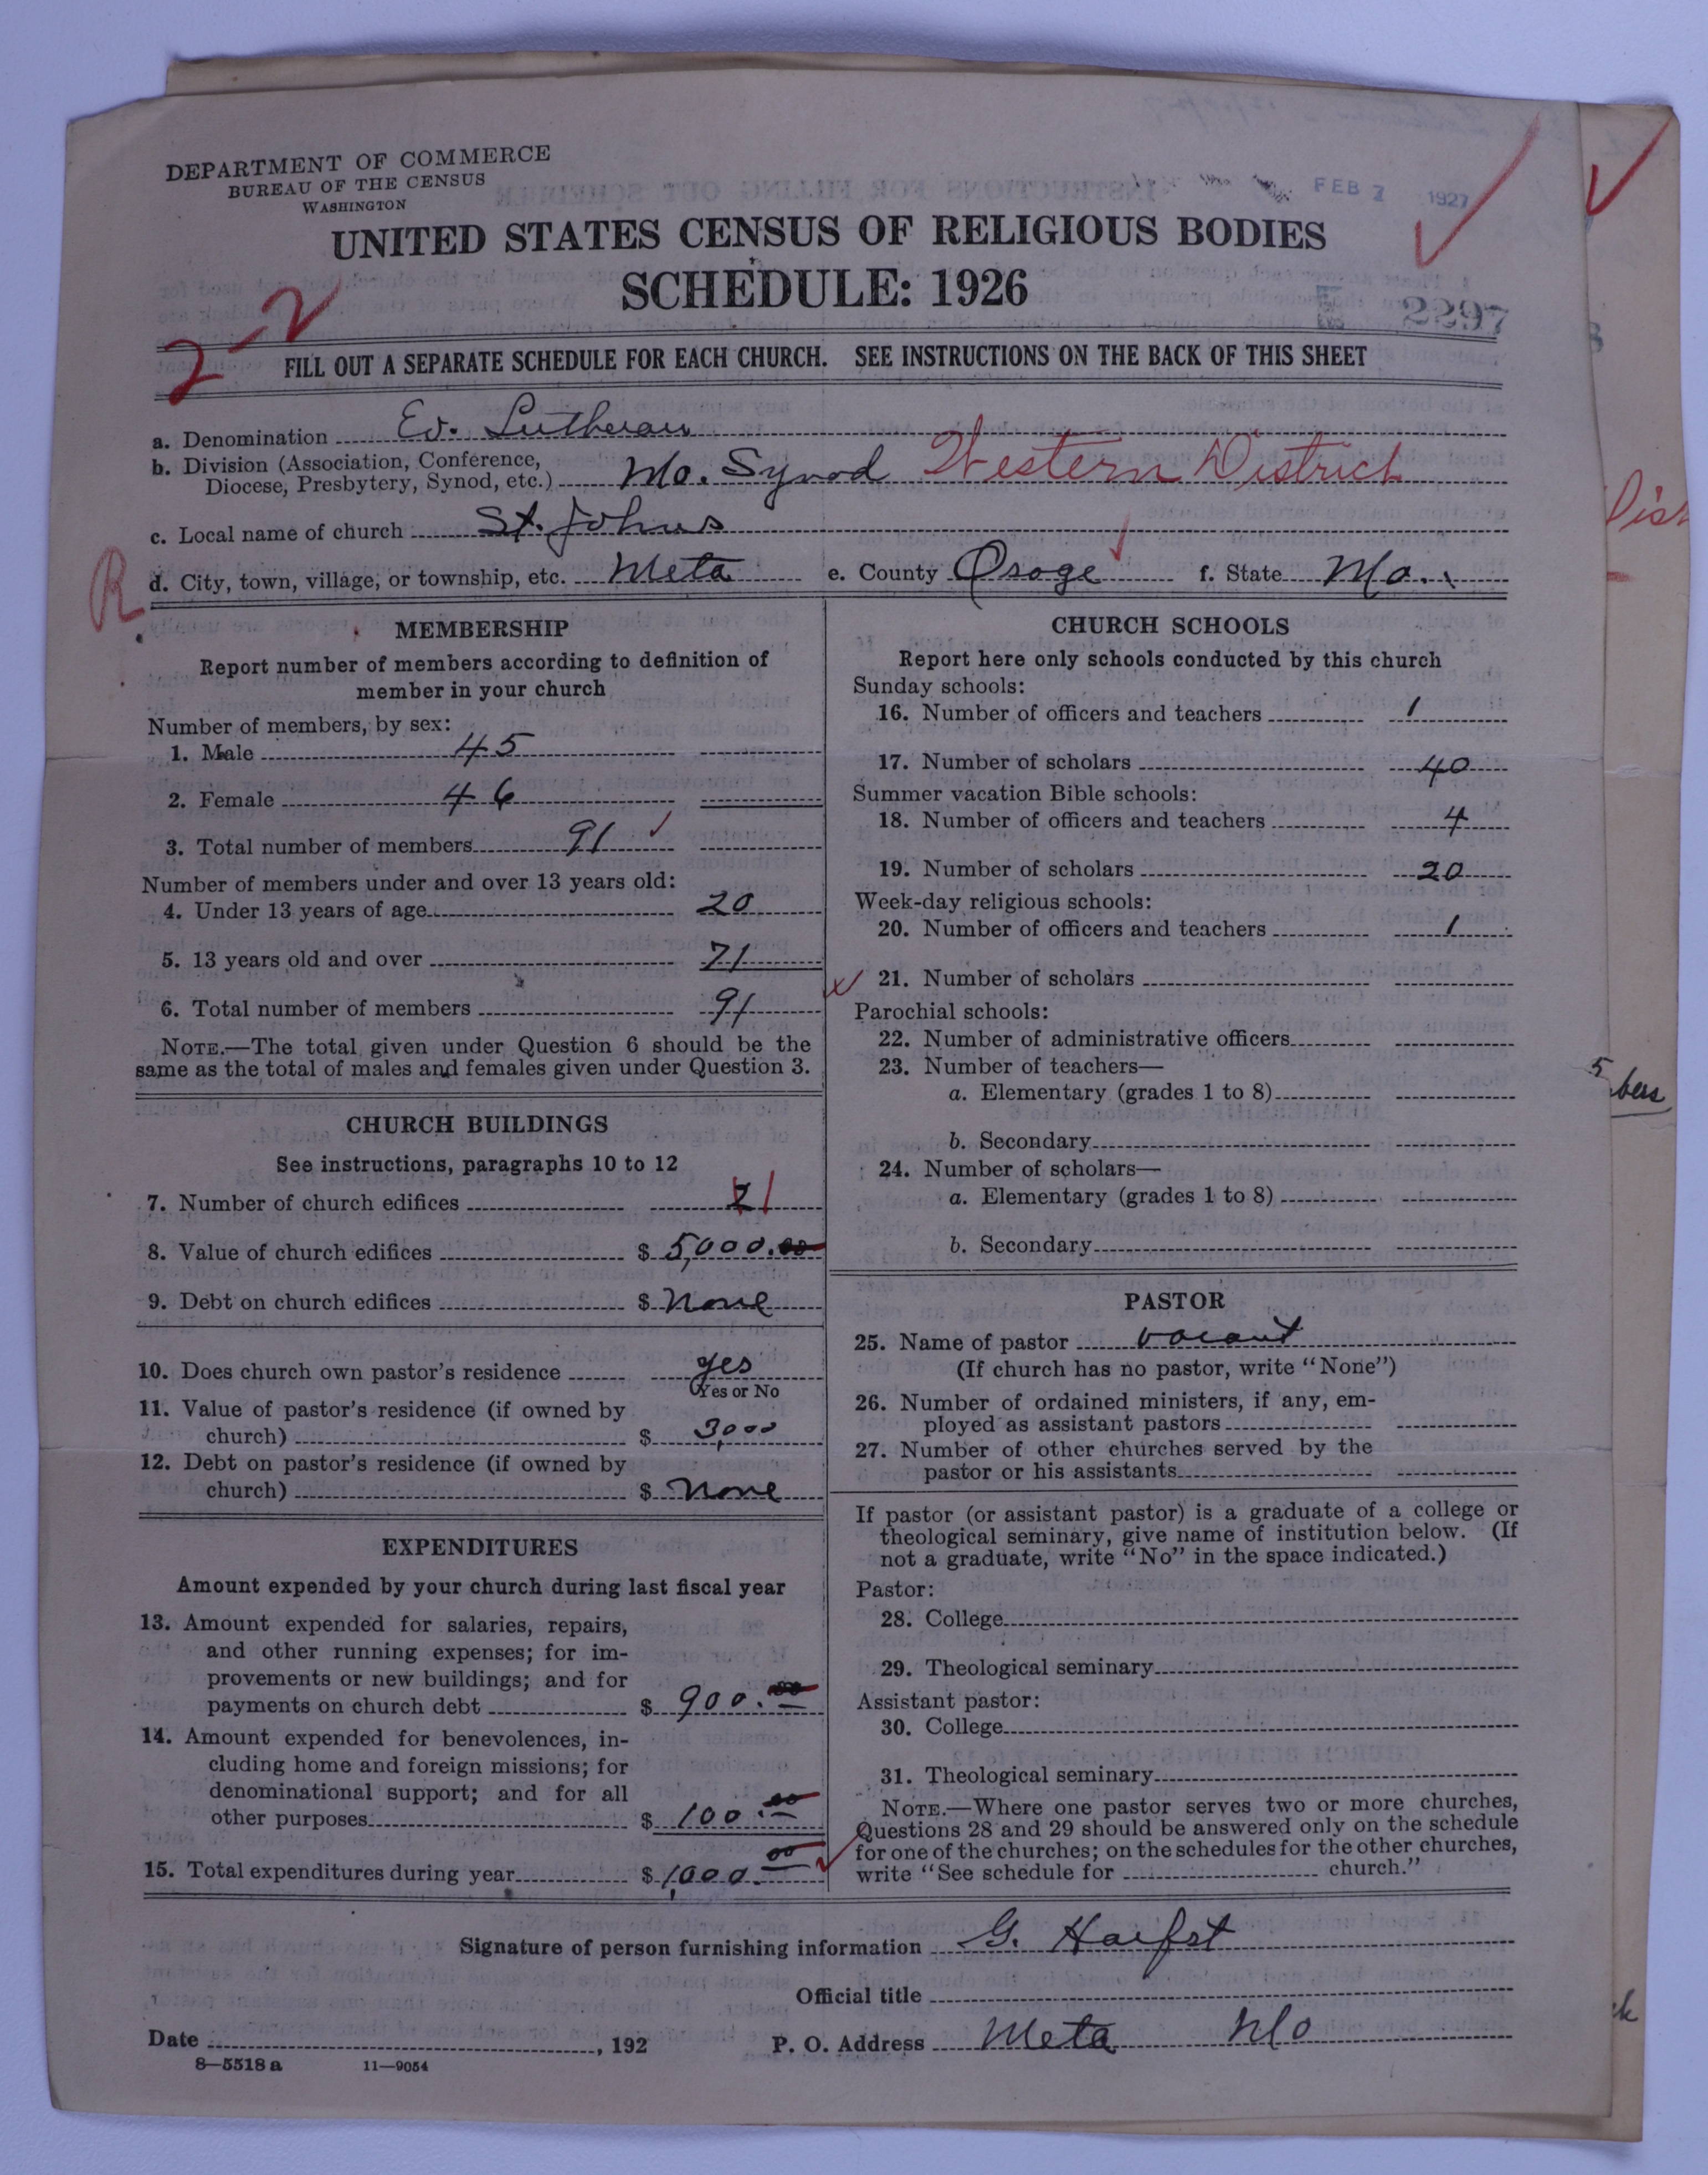 DEPARTMENT OF COMMERCE
BUREAU OF THE CENSUS
WASHINGTON
FEB 1927
UNITED STATES CENSUS OF RELIGIOUS BODIES
SCHEDULE: 1926
2-2
2297
FILL OUT A SEPARATE SCHEDULE FOR EACH CHURCH. SEE INSTRUCTIONS ON THE BACK OF THIS SHEET
a. Denomination Ev. Lutheran
b. Division (Association, Conference,
Diocese, Presbytery, Synod, etc.) Mo. Synod Western District
c. Local name of church St. Johns
R
d. City, town, village, or township, etc. Meta e. County Osage f. State Mo.
MEMBERSHIP
Report number of members according to definition of
member in your church
Number of members, by sex:
1. Male 45
2. Female 46
3. Total number of members 91
Number of members under and over 13 years old:
4. Under 13 years of age 20
5. 13 years old and over 71
6. Total number of members 91
NOTE.—The total given under Question 6 should be the
same as the total of males and females given under Question 3.
CHURCH BUILDINGS
See instructions, paragraphs 10 to 12
7. Number of church edifices 2 1
8. Value of church edifices $ 5,000.00
9. Debt on church edifices $ None
10. Does church own pastor's residence yes
Yes or No
11. Value of pastor's residence (if owned by
church) $ 3,000
12. Debt on pastor's residence (if owned by
church) $ None
EXPENDITURES
Amount expended by your church during last fiscal year
13. Amount expended for salaries, repairs,
and other running expenses; for im-
provements or new buildings; and for
payments on church debt $ 900.00
14. Amount expended for benevolences, in-
cluding home and foreign missions; for
denominational support; and for all
other purposes $ 100.00
15. Total expenditures during year $ 1,000.00
CHURCH SCHOOLS
Report here only schools conducted by this church
Sunday schools:
16. Number of officers and teachers 1
17. Number of scholars 40
Summer vacation Bible schools:
18. Number of officers and teachers 4
19. Number of scholars 20
Week-day religious schools:
20. Number of officers and teachers 1
21. Number of scholars
Parochial schools:
22. Number of administrative officers
23. Number of teachers—
a. Elementary (grades 1 to 8)
b. Secondary
24. Number of scholars—
a. Elementary (grades 1 to 8)
b. Secondary
PASTOR
25. Name of pastor vacant
(If church has no pastor, write "None")
26. Number of ordained ministers, if any, em-
ployed as assistant pastors
27. Number of other churches served by the
pastor or his assistants
If pastor (or assistant pastor) is a graduate of a college or
theological seminary, give name of institution below. (If
not a graduate, write "No" in the space indicated.)
Pastor:
28. College
29. Theological seminary
Assistant pastor:
30. College
31. Theological seminary
NOTE.—Where one pastor serves two or more churches,
Questions 28 and 29 should be answered only on the schedule
for one of the churches; on the schedules for the other churches,
write "See schedule for church."
Signature of person furnishing information G. Haefst
Official title
Date , 192 P. O. Address Meta Mo
8—5518 a 11—9054